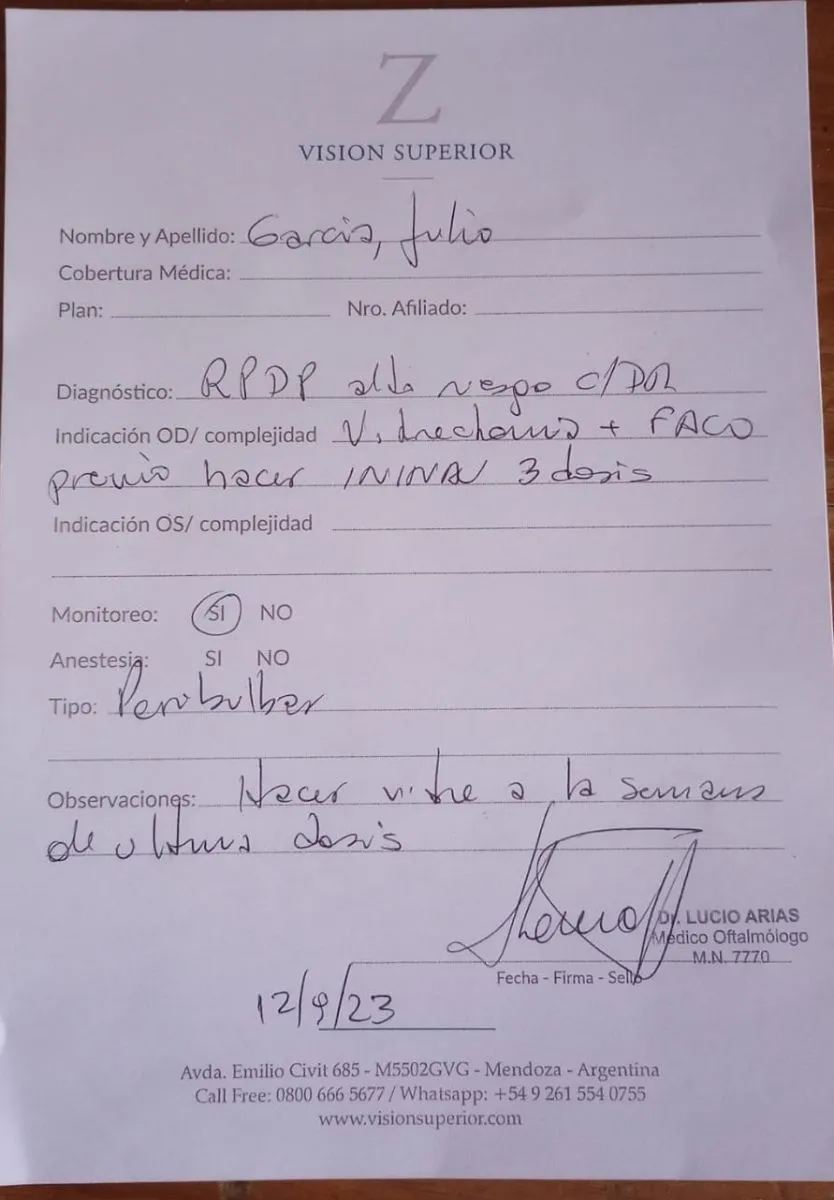 Z
VISION SUPERIOR
Nombre y Apellido: Garcia, Julio
Cobertura Médica:
Plan: Nro. Afiliado:
Diagnóstico: RPDP alto riesgo c/DR
Indicación OD/ complejidad Vitrectomia + FACO
previo hacer ININAV 3 dosis
Indicación OS/ complejidad
Monitoreo: SI NO
Anestesia: SI NO
Tipo: Peribulbar
Observaciones: Hacer vitre a la semana
de ultima dosis
Dr. LUCIO ARIAS
Médico Oftalmólogo
M.N. 7770
Fecha - Firma - Sello
12/9/23
Avda. Emilio Civit 685 - M5502GVG - Mendoza - Argentina
Call Free: 0800 666 5677 / Whatsapp: +54 9 261 554 0755
www.visionsuperior.com